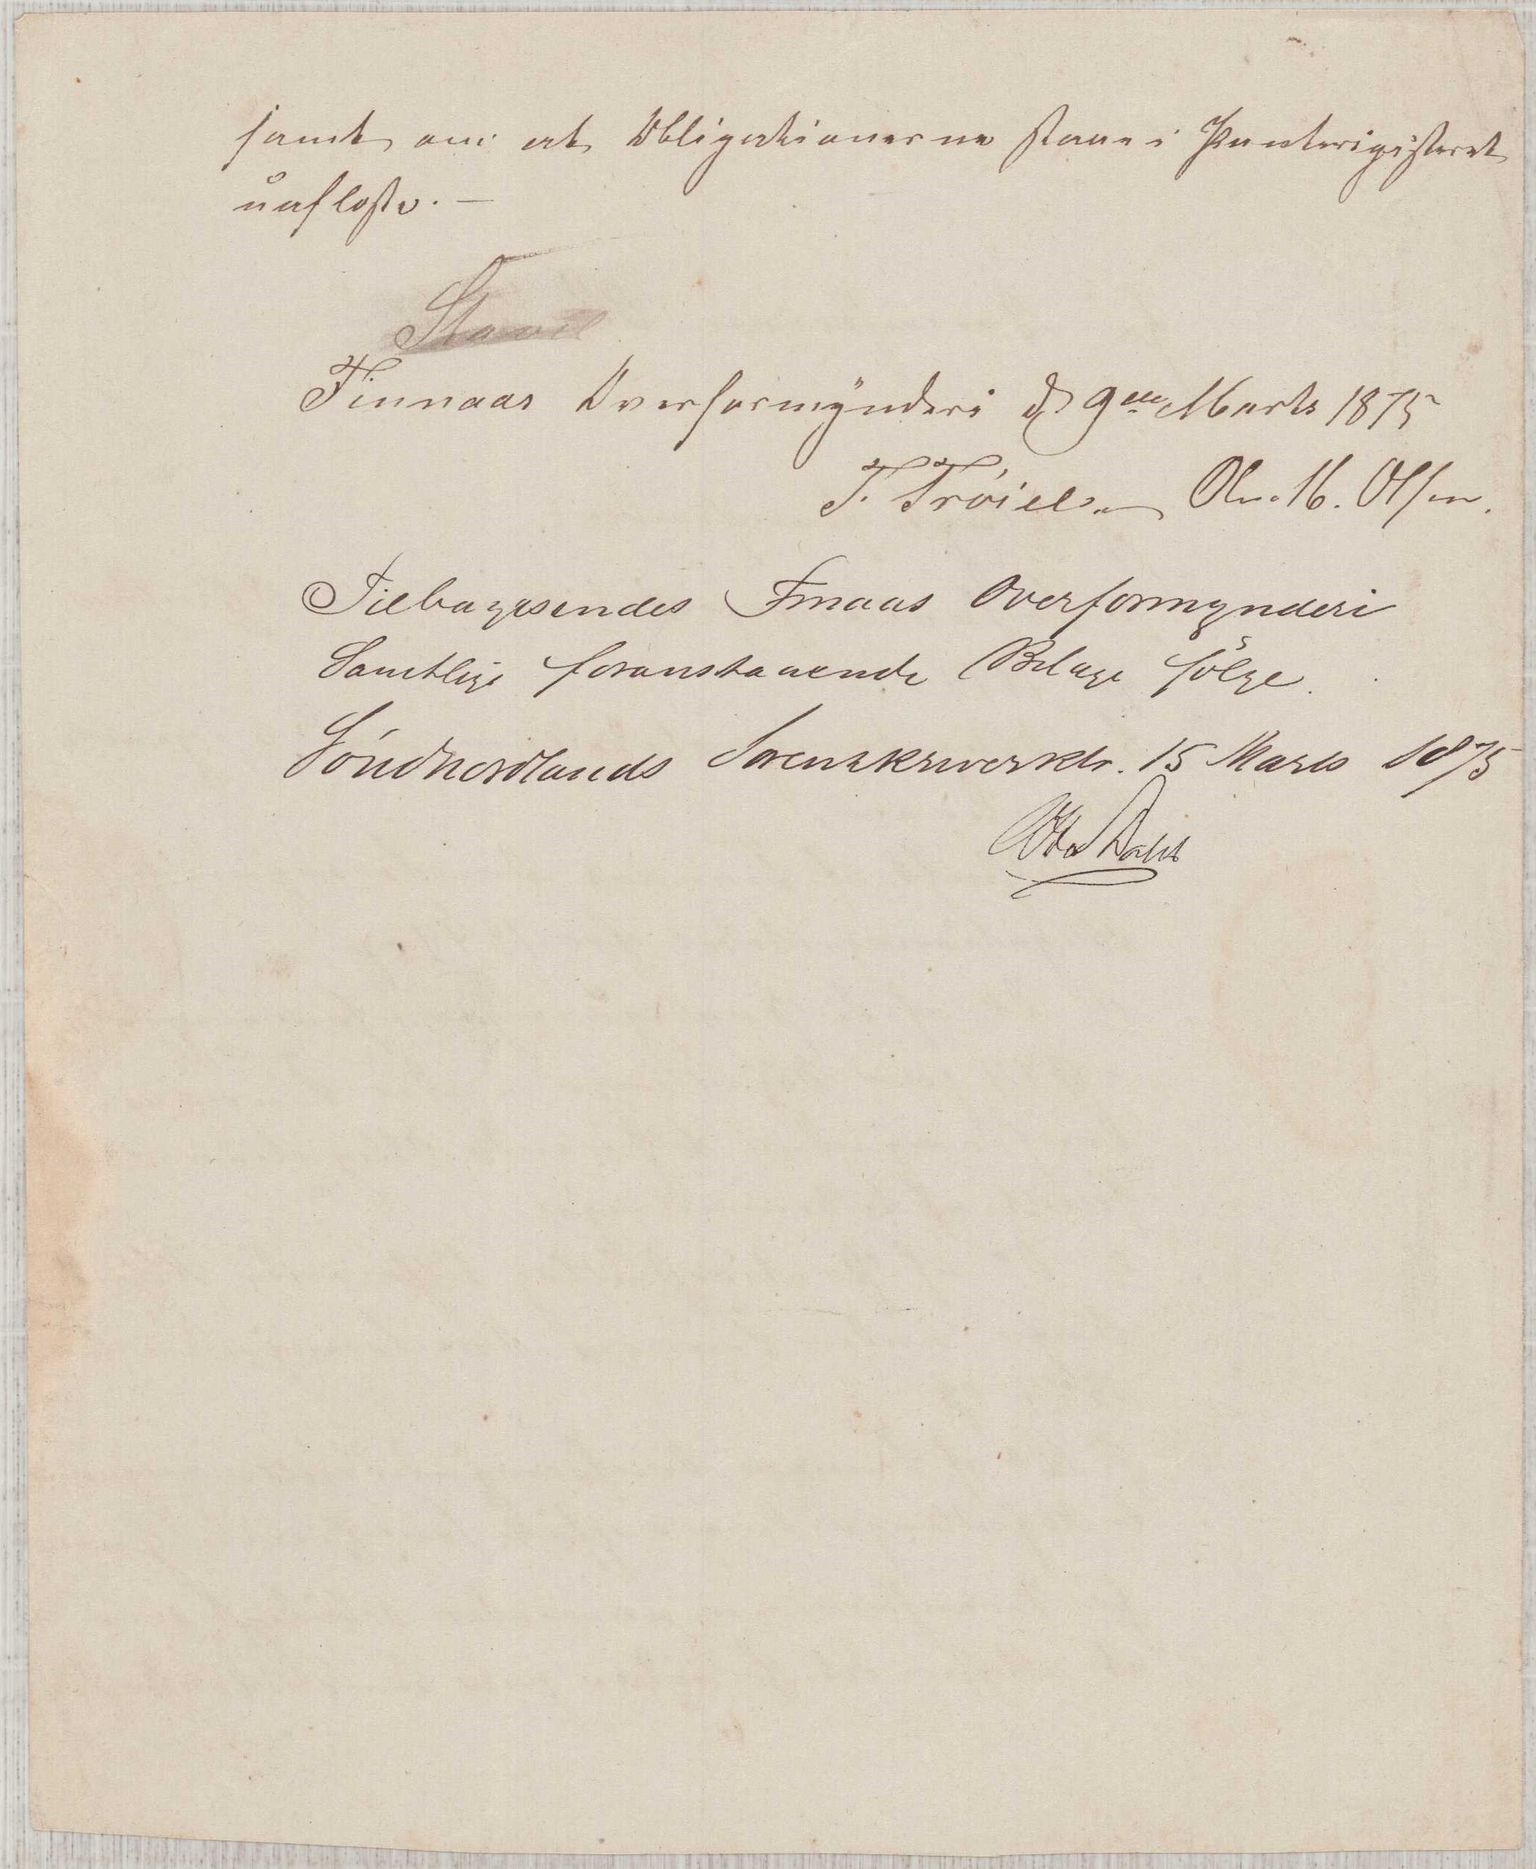 samt om at Obligationerne staae i Panteregisteret
uafløste. —
Finnaas Overformynderi d 9de Marts 1875
T. Trøiel Ole M. Olsen.
Tilbagesendes Finaas Overformynderi
Samtlige foranstaaende Bilage følge.
Søndhordlands Sorenskriverkt. 15 Marts 1875
Otto Dahl